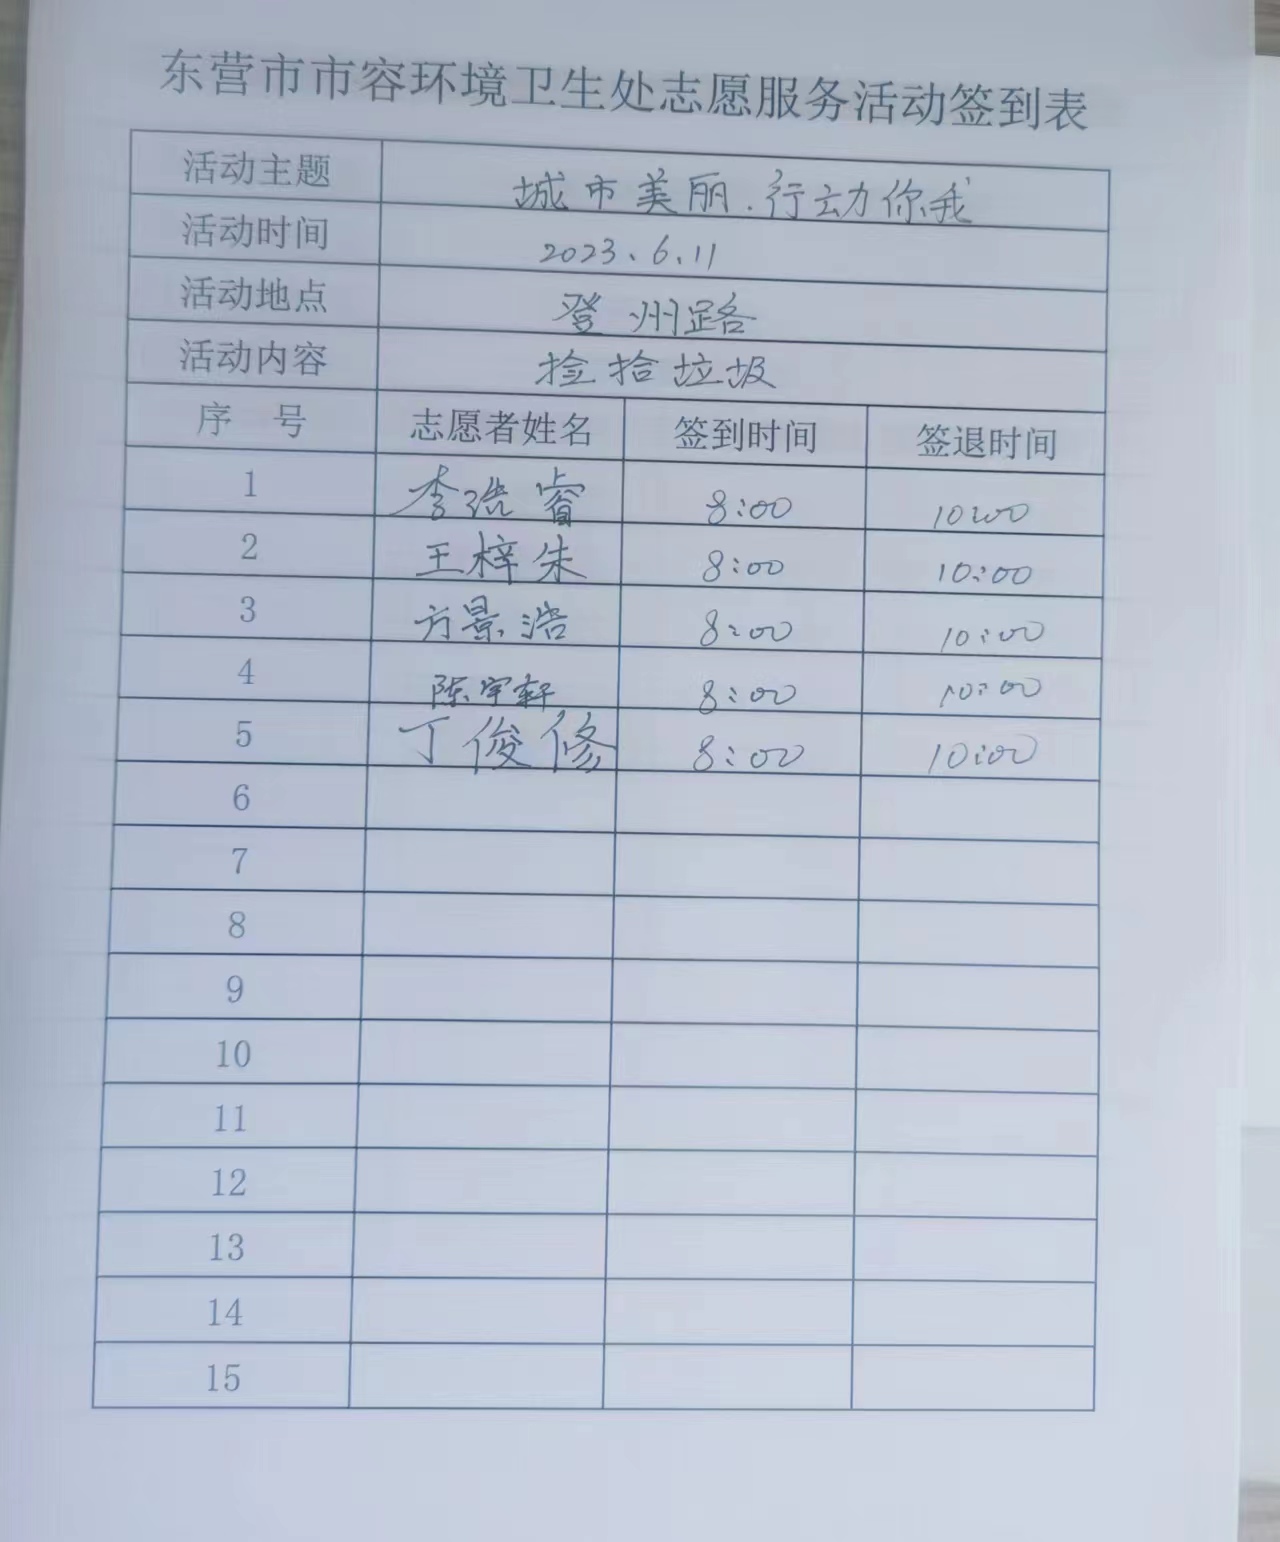 东营市市容环境卫生处志愿服务活动签到表
活动主题 城市美丽.行动你我
活动时间 2023、6、11
活动地点 登州路
活动内容 捡拾垃圾
序 号 志愿者姓名 签到时间 签退时间
1 李浩睿 8:00 10:00
2 王梓朱 8:00 10:00
3 方景浩 8:00 10:00
4 陈宇轩 8:00 10:00
5 丁俊修 8:00 10:00
6
7
8
9
10
11
12
13
14
15